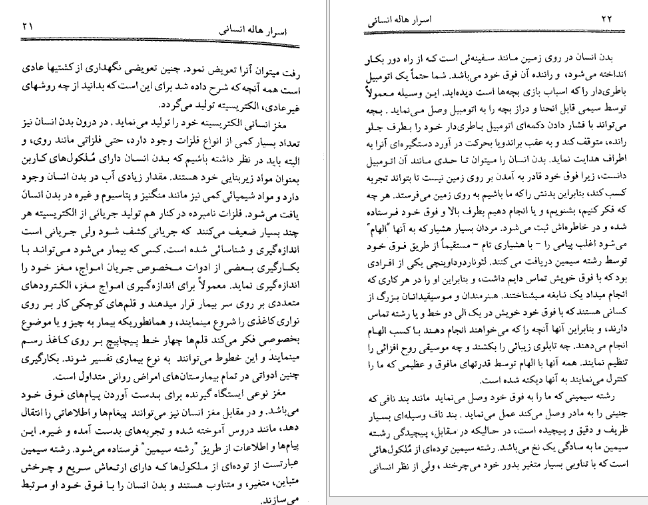 اسرار هاله انسانی ۲۱
رفت میتوان آنرا تعویض نمود. چنین تعویضی نگهداری از کشتیها عادی
است همه آنچه که شرح داده شد برای این است که بدانید از چه روشهای
غیرعادی، الکتریسیته تولید می‌گردد.
مغز انسانی الکتریسیته خود را تولید می‌نماید. در درون بدن انسان نیز
تعداد بسیار کمی از انواع فلزات وجود دارد، حتی فلزاتی مانند روی، و
البته باید در نظر داشته باشیم که بدن انسان دارای مُلکول‌های کاربن
بعنوان مواد زیربنایی خود هستند. مقدار زیادی آب در بدن انسان وجود
دارد و مواد شیمیائی کمی نیز مانند منگنیز و پتاسیوم و غیره در بدن انسان
یافت می‌شود. فلزات نامبرده در کنار هم تولید جریانی از الکتریسیته هر
چند بسیار ضعیف می‌کنند که جریانی کشف شود ولی جریانی است
اندازه‌گیری و شناسائی شده است. کسی که بیمار می‌شود می‌تواند با
بکارگیری بعضی از ادوات مخصوص جریان امواج، مغز خود را
اندازه‌گیری نماید. معمولاً برای اندازه‌گیری امواج مغز، الکترودهای
متعددی بر روی سر بیمار قرار میدهند و قلم‌های کوچکی کار بر روی
نواری کاغذی را شروع مینمایند، و همانطوریکه بیمار به چیز و یا موضوع
بخصوصی فکر می‌کند قلم‌ها چهار خط پیچاپیچ بر روی کاغذ رسم
مینمایند و این خطوط می‌توانند به نوع بیماری تفسیر شوند. بکارگیری
چنین ادواتی در تمام بیمارستان‌های امراض روانی متداول است.
مغز نوعی ایستگاه گیرنده برای بدست آوردن پیام‌های فوق خود
می‌باشد. و در مقابل مغز انسان نیز می‌توانند پیغام‌ها و اطلاعاتی را انتقال
دهد، مانند دروس آموخته شده و تجربه‌های بدست آمده و غیره. این
پیام‌ها و اطلاعات از طریق "رشته سیمین" فرستاده می‌شود. رشته سیمین
عبارتست از توده‌ای از ملکول‌ها که دارای ارتعاش سریع و چرخش
متباین، متغیر، و متناوب هستند و بدن انسان را با فوق خود او مرتبط
می‌سازند.
۲۲ اسرار هاله انسانی
بدن انسان در روی زمین مانند سفینه‌ئی است که از راه دور بکار
انداخته می‌شود، و راننده آن فوق خود می‌باشد. شما حتماً یک اتومبیل
باطری‌دار را که اسباب بازی بچه‌ها است دیده‌اید. این وسیله معمولاً
توسط سیمی قابل انحنا و دراز بچه را به اتومبیل وصل می‌نماید. بچه
می‌تواند با فشار دادن دکمه‌ای اتومبیل باطری‌دار خود را بطرف جلو
رانده، متوقف کند و به عقب براندویا بحرکت در آورد دستگیره‌ای آنرا به
اطراف هدایت نماید. بدن انسان را میتوان تا حدی مانند آن اتومبیل
دانست، زیرا فوق خود قادر به آمدن بر روی زمین نیست تا بتواند تجربه
کسب کند، بنابراین بدنش را که ما باشیم به روی زمین می‌فرستد. هر چه
که فکر کنیم، بشنویم، و یا انجام دهیم بطرف بالا و فوق خود فرستاده
شده و در خاطره‌اش ثبت می‌شود. مردان بسیار هشیار که به آنها "الهام"
می‌شود اغلب پیامی را - با هشیاری تام - مستقیماً از طریق فوق خود
توسط رشته سیمین دریافت می‌کنند. لئوناردوداوینچی یکی از افرادی
بود که با فوق خویش تماس دایم داشت، و بنابراین او را در هر کاری که
انجام میداد یک نابغه میشناختند. هنرمندان و موسیقیدانان بزرگ از
کسانی هستند که با فوق خود خویش در یک الی دو خط و یا رشته تماس
دارند، و بنابراین آنها آنچه را که می‌خواهند انجام دهند با کسب الهام
انجام می‌دهند. چه تابلوی زیبائی را بکشند و چه موسیقی روح افزائی را
تنظیم نمایند. همه آنها با الهام توسط قدرتهای مافوق و عظیمی که ما را
کنترل می‌نمایند به آنها دیکته شده است.
رشته سیمینی که ما را به فوق خود وصل می‌نماید مانند بند نافی که
جنینی را به مادر وصل می‌کند عمل می‌نماید. بند ناف وسیله‌ای بسیار
ظریف و دقیق و پیچیده است، در حالیکه در مقابل، پیچیدگی رشته
سیمین ما به سادگی یک نخ می‌باشد. رشته سیمین توده‌ای از مُلکول‌هائی
است که با تناوبی بسیار متغیر بدور خود می‌چرخند، ولی از نظر انسانی